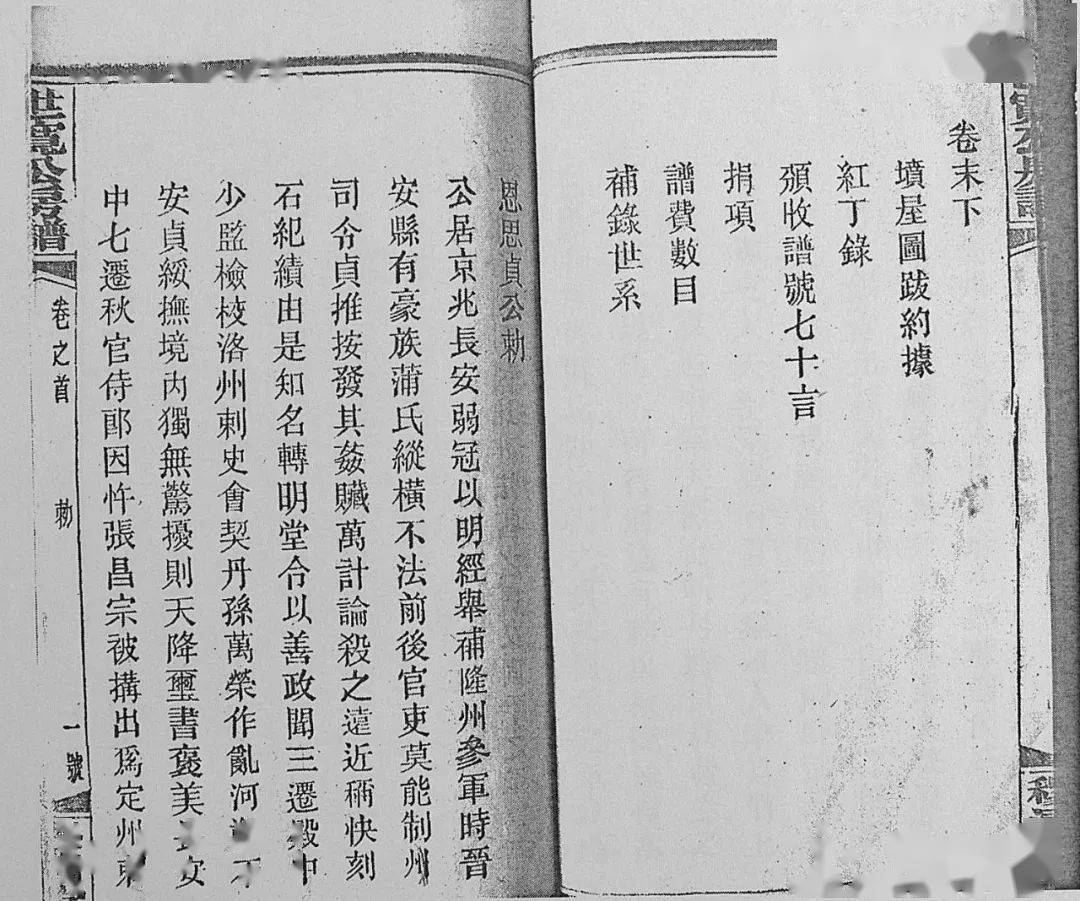 卷末下
墳屋圖跋約據
紅丁錄
頒收譜號七十言
捐項
譜費數目
補錄世系
恩思貞公勅
公居京兆長安弱冠以明經舉補隆州參軍時晉
安縣有豪族蒲氏縱橫不法前後官吏莫能制州
司令貞推按發其姦贓萬計論殺之遠近稱快刻
石紀績由是知名轉明堂令以善政聞三遷殿中
少監檢校洛州刺史會契丹孫萬榮作亂河
安貞綏撫境內獨無驚擾則天降璽書褒美
中七遷秋官侍郎因忤張昌宗被搆出爲定州
世寬公房譜
卷之首
勅
一號